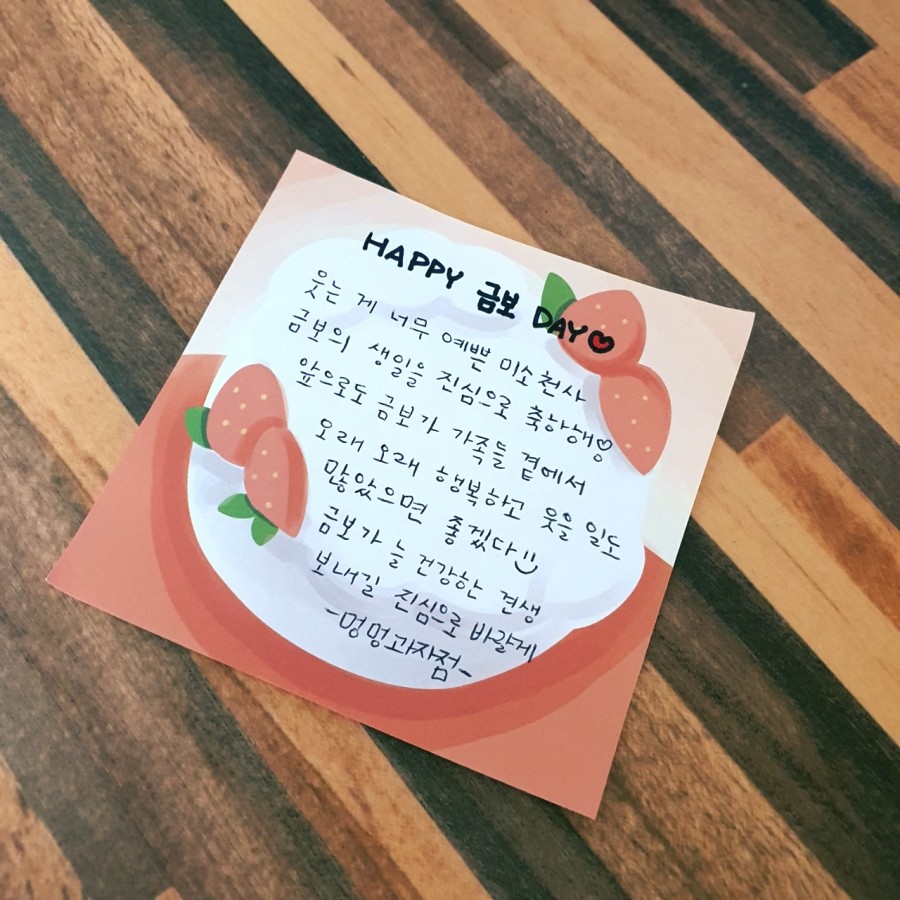 HAPPY 금보 DAY♥
웃는 게 너무 예쁜 미소천사
금보의 생일을 진심으로 축하해♡
앞으로도 금보가 가족들 곁에서
오래 오래 행복하고 웃을 일도
많았으면 좋겠다 :)
금보가 늘 건강한 견생
보내길 진심으로 바랄게
-멍멍과자점-